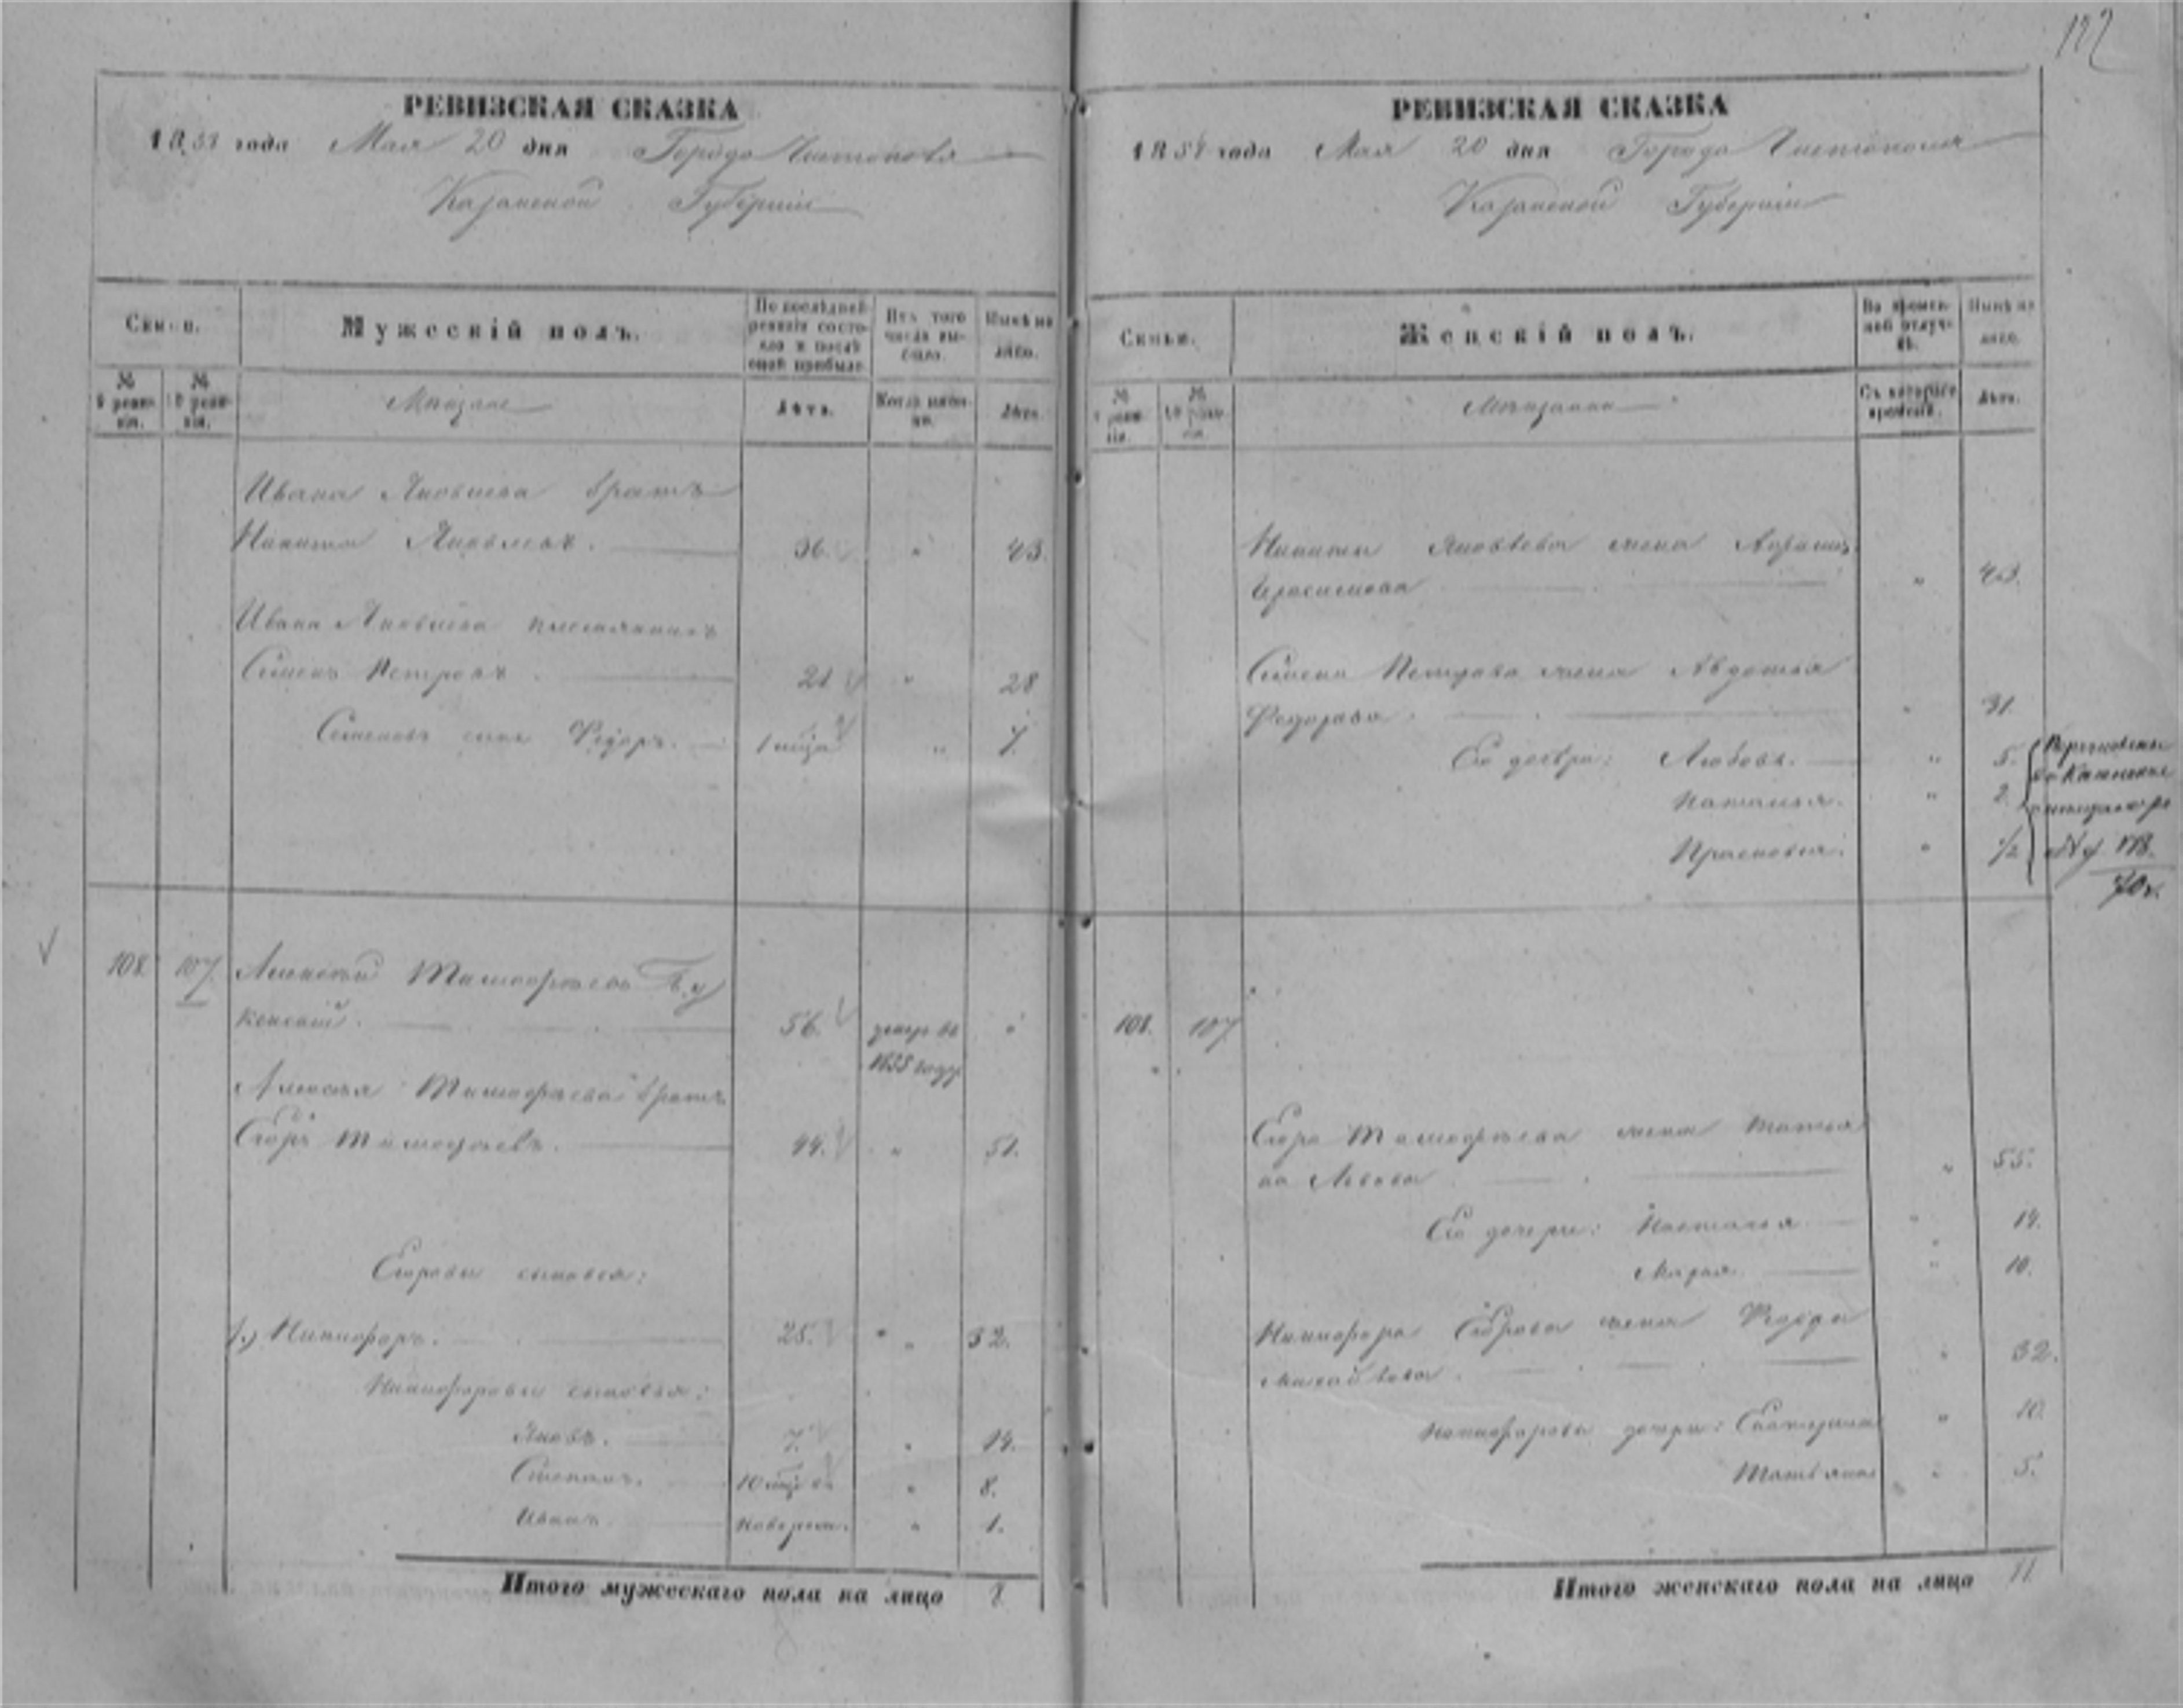 РЕВИЗСКАЯ СКАЗКА
1858 года Мая 20 дня Города Чистополя
Казанской Губернии
Семьи.
Мужескій полъ.
По послѣдней ревизіи состояло и послѣ оной прибыло.
Изъ того числа выбыло.
Нынѣ на лицо.
№ 9 ревизіи.
№ 10 ревизіи.
Мѣщане
Лѣта.
Когда именно.
Лѣта.
Ивана Яковлева братъ
Никита Яковлевъ. 36. " 43.
Ивана Яковлева племянникъ
Семенъ Петровъ 21 " 28
Семеновъ сынъ Федоръ. " 7.
108. 107. Алексѣй Тимофѣевъ
56. умеръ въ "
1855 году
Алексѣя Тимофѣева братъ
Егоръ Тимофѣевъ. 44. " 51.
Егоровы сыновья:
1.) Никифоръ. 25. " 32.
Никифоровы сыновья:
Яковъ. 7. " 14.
Степанъ. 10 " 8.
Иванъ. новорожд. " 1.
Итого мужескаго пола на лицо 8
122
РЕВИЗСКАЯ СКАЗКА
1858 года Мая 20 дня Города Чистополя
Казанской Губернии
Семьи.
Женскій полъ.
Во временной отлучкѣ.
Нынѣ на лицо.
№ 9 ревизіи.
№ 10 ревизіи.
Мѣщанки
Съ котораго времени.
Лѣта.
Никиты Яковлева жена
Герасимова " 43.
Семена Петрова жена Авдотья
Федорова " 31.
Его дочери: Любовь. " 5.
Наталья. " 2.
Прасковья. " 1/2
70
108. 107
Егора Тимофѣева жена Татья
на Львова " 55.
Его дочери: Наталья " 14.
Марья. " 10.
Никифора Егорова жена
Михайлова. " 32.
Никифоровы дочери: Екатерина " 10.
Татьяна " 5.
Итого женскаго пола на лицо 11